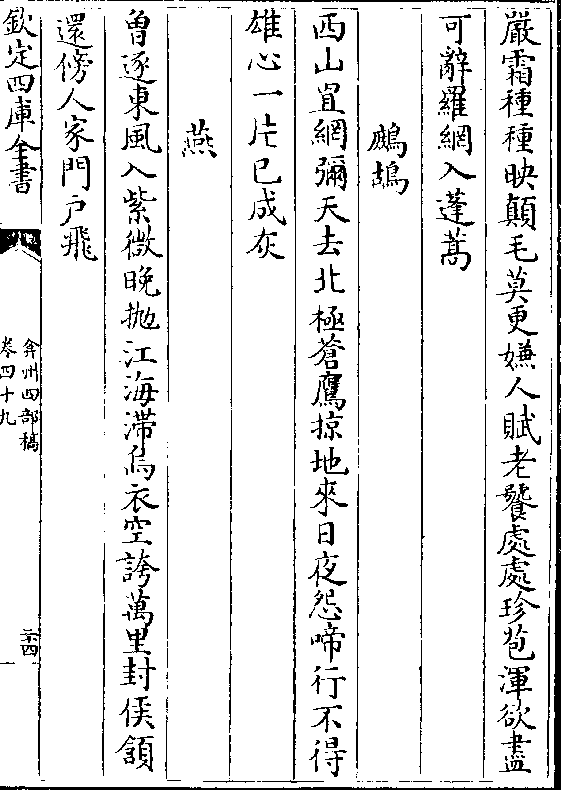 嚴霜種種映顛毛莫更嫌人賦老饕處處珍苞渾欲盡
可辭羅網入蓬蒿
鷓鴣
西山罝網彌天去北極蒼鷹掠地來日夜怨啼行不得
雄心一片已成灰
燕
曾逐東風入紫微晚抛江海滯烏衣空誇萬里封侯頷
還傍人家門户飛
欽定四庫全書
弇州四部稿
卷四十九
二十四